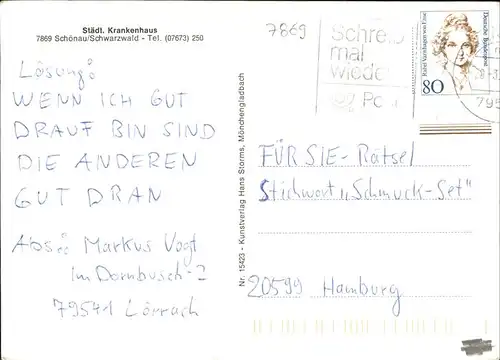 Städt. Krankenhaus
7869 Schönau/Schwarzwald - Tel. (07673) 250
Lösung:
WENN ICH GUT
DRAUF BIN SIND
DIE ANDEREN
GUT DRAN
Abs.: Markus Vogt
Im Dornbusch 2
79541 Lörrach
Nr. 15423 - Kunstverlag Hans Storms, Mönchengladbach
7869
Schreib
mal
wieder
Deutsche Bundespost
Rahel Varnhagen von Ense
80
FÜR SIE-Rätsel
Stichwort „Schmuck-Set"
20599 Hamburg